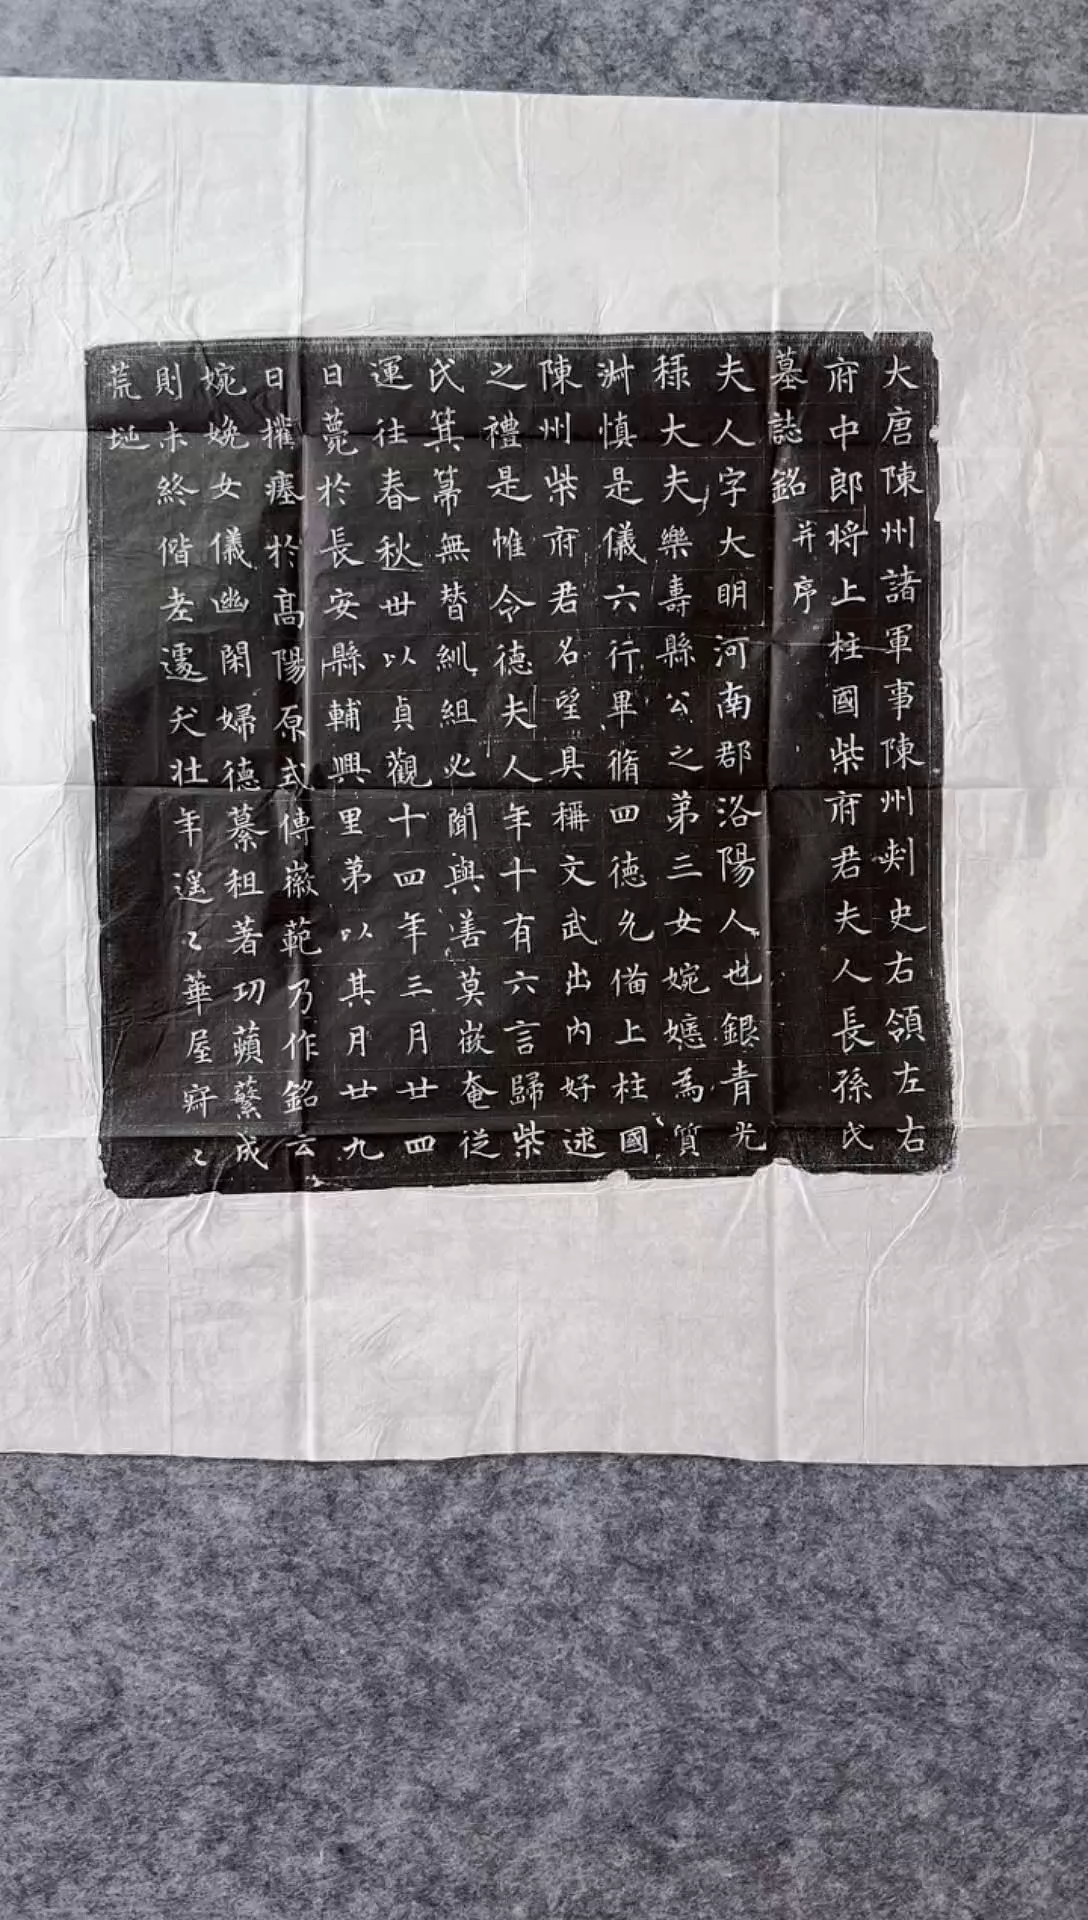 大唐陳州諸軍事陳州刾史右領左右
府中郎將上柱國柴府君夫人長孫氏
墓誌銘并序
夫人字大明河南郡洛陽人也銀青光
祿大夫樂壽縣公之第三女婉嬺為質
淋慎是儀六行畢脩四德允俻上柱國
陳州柴府君名望具稱文武出內好逑
之禮是惟令德夫人年十有六言歸柴
氏箕箒無替紃組必聞與善莫徵奄従
運往春秋丗以貞觀十四年三月廿四
日薨於長安縣輔興里第以其月廿九
日權瘞於高陽原式傳徽範乃作銘云
婉娩女儀幽閑婦德纂組著功蘋蘩成
則未終偕老遽夭壯年遥〻華屋㝛〻
荒埏